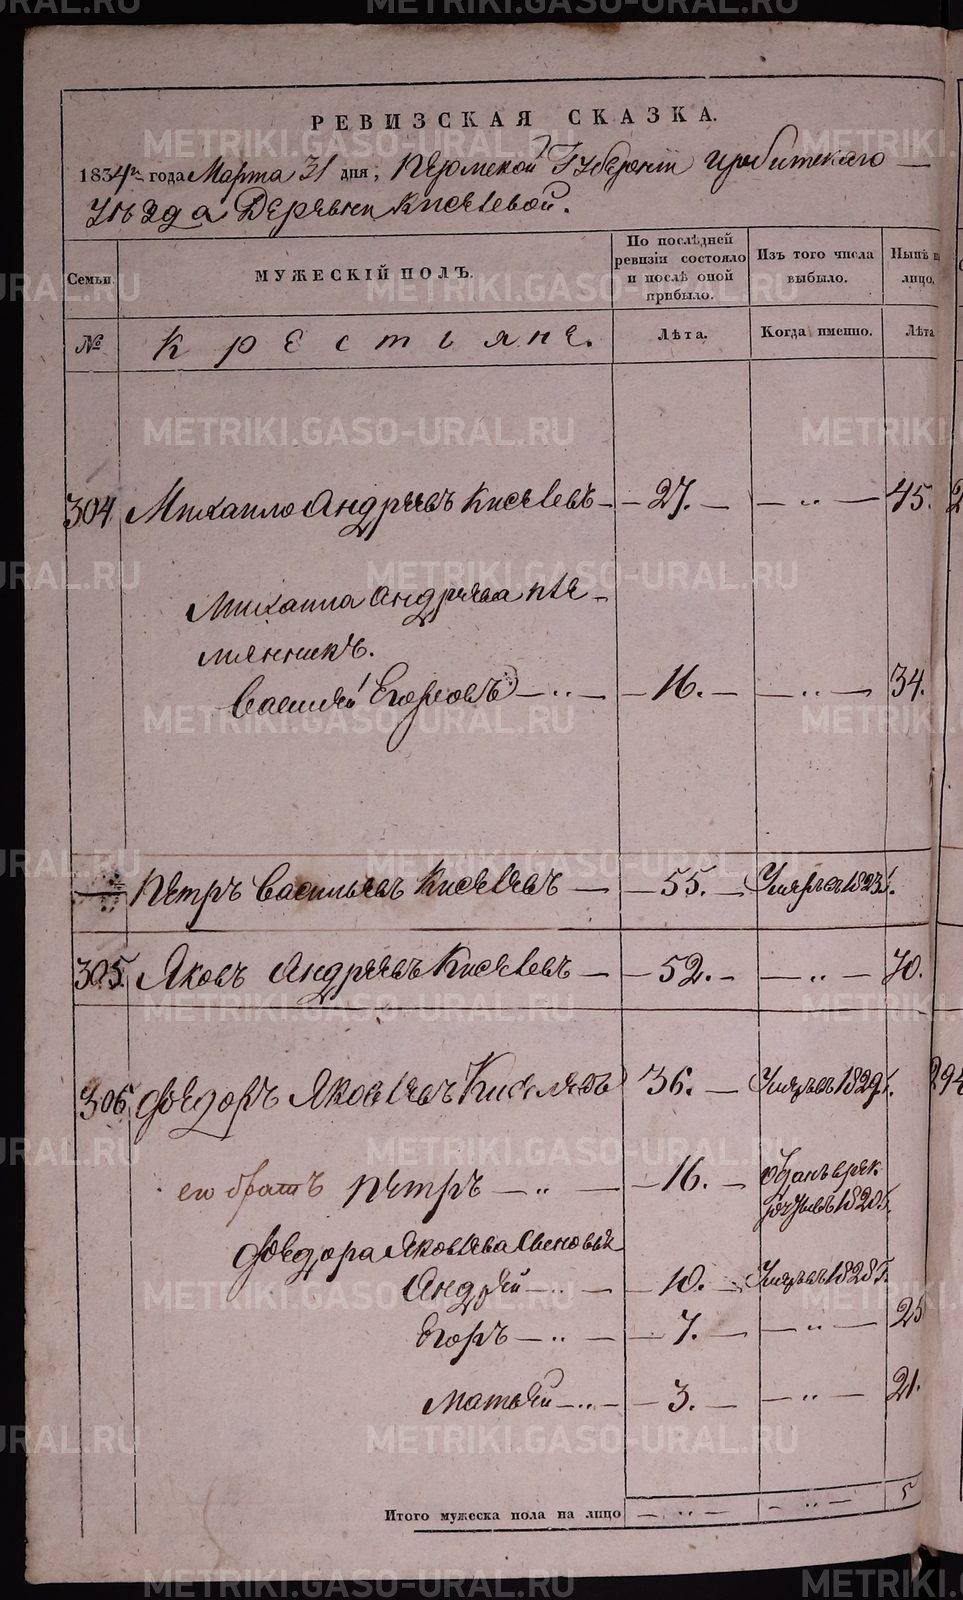 РЕВИЗСКАЯ СКАЗКА.
1834 года Марта 31 дня, Пермской Губернии Ирбитскаго
Уѣзда Деревни Киселевой.
Семьи.
МУЖЕСКІЙ ПОЛЪ.
По послѣдней ревизіи состояло и послѣ оной прибыло.
Изъ того числа выбыло.
Нынѣ н
лицо.
№
Крестьяне.
Лѣта.
Когда именно.
Лѣта
304 Михаило Андреевъ Киселевъ — 27. — „ — 45.
Михаила Андреева пле-
мянникъ.
Василей Егоровъ — „ — 16. — „ — 34.
Петръ Васильевъ Киселевъ — 55. — Умеръ въ 1823 г.
305. Яковъ Андреевъ Киселевъ — 52. — „ — 70.
306 Федоръ Яковлевъ Киселевъ 36. — Умеръ въ 1829 г.
его братъ Петръ — „ — 16. — Отданъ в рек-
руты въ 1820 г.
Федора Яковлева сыновья
Андрей — „ — 10. — Умеръ въ 1828 г.
Егоръ — „ — 7. — „ — 25
Матвей — „ — 3. — „ — 21.
Итого мужеска пола на лицо — „ — — „ — 5
METRIKI.GASO-URAL.RU